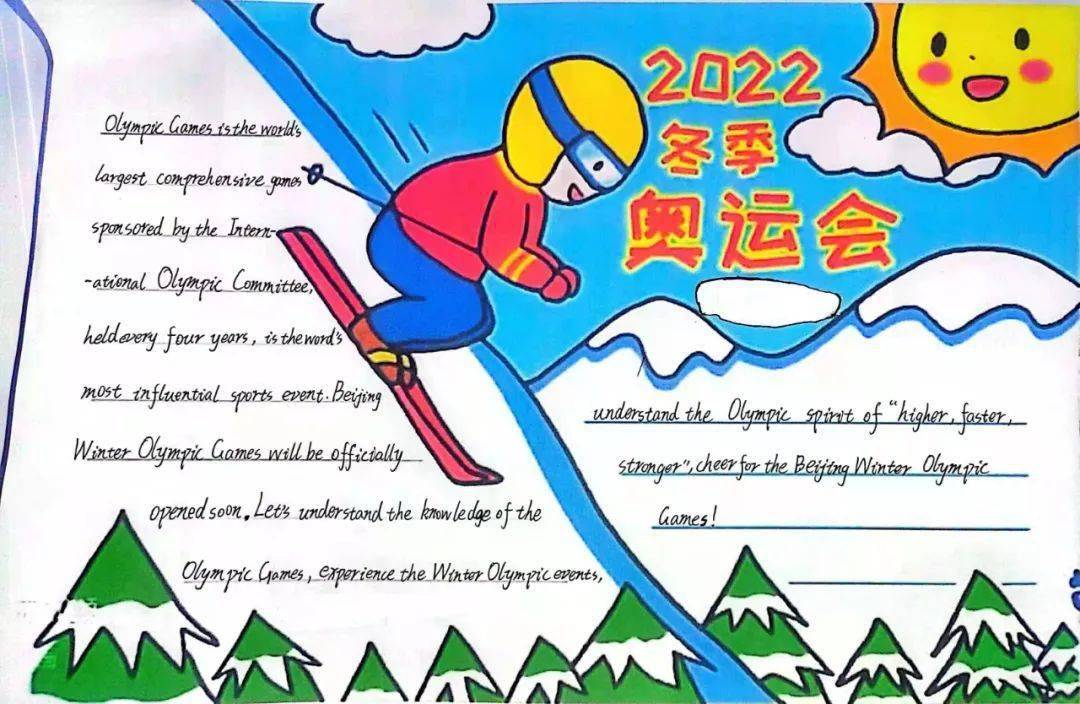 2022
冬季
奥运会
Olympic Games is the world's
largest comprehensive games
sponsored by the Intern-
-ational Olympic Committee,
held every four years, is the word's
most influential sports event. Beijing
Winter Olympic Games will be officially
opened soon. Let's understand the knowledge of the
Olympic Games, experience the Winter Olympic events,
understand the Olympic spirit of "higher, faster,
stronger", cheer for the Beijing Winter Olympic
Games!